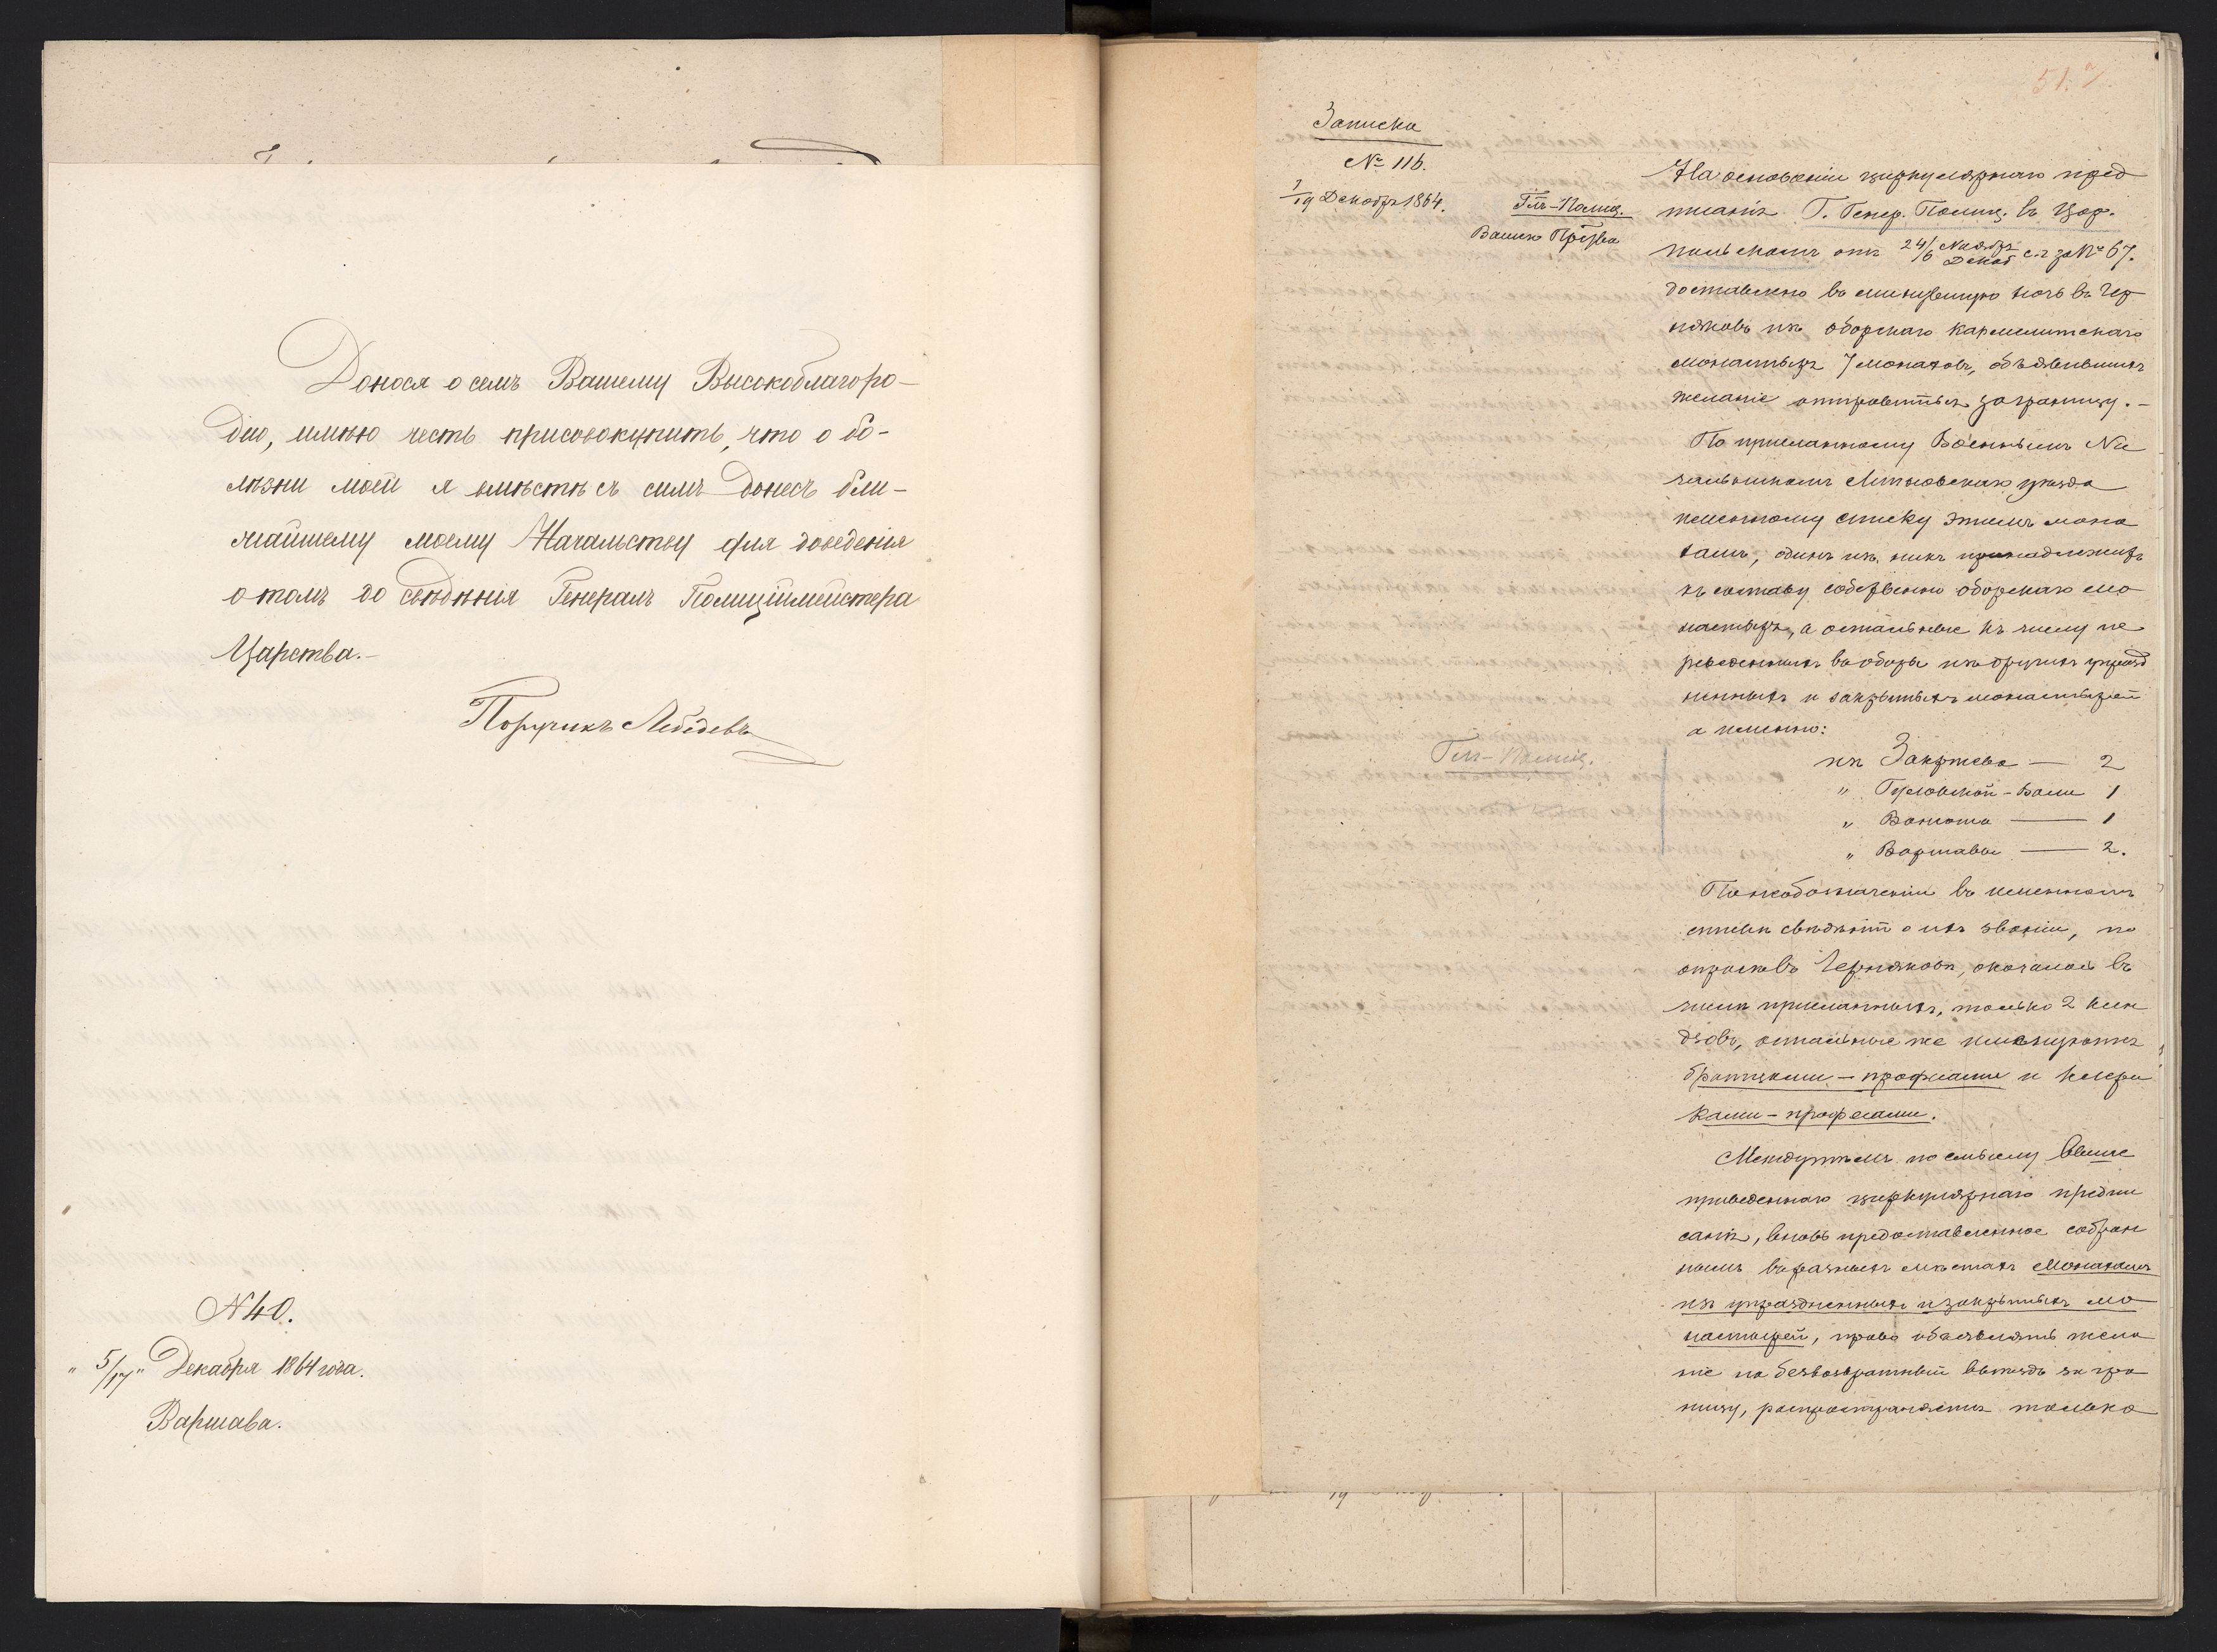 Донося о семъ Вашему Высокоблагоро-
дию, имѣю честь присовокупить, что о бо-
лѣзни моей я вмѣстѣ съ симъ донесъ бли-
жайшему моему Начальству для доведенія
о томъ до свѣдѣнія Генералъ Полиціймейстера
Царства.-
Поручикъ Лебедевъ
N 40.
" 5/17 " Декабря 1864 года.
Варшава.
51.
Записка
№ 116.
7/19 Декабря 1864.
Гнл-Полиц.
Вашего Прев-ва
На основаніи циркулярнаго пред
писанія Г. Генер. Полиц. въ Цар.
польскомъ отъ 24/6 Ноября/Декаб с.г за № 67.
доставлено въ минувшую ночь въ Чер
няковъ изъ оборскаго кармелитскаго
монастыря 7 монаховъ, объявившихъ
желаніе отправиться заграницу. -
По присланному Военнымъ На
чальникомъ уѣзда
именному списку этимъ мона
хамъ, одинъ изъ нихъ принадлежитъ
къ составу собственно оборскаго мо
настыря, а остальные къ числу пе
реведенныхъ въ оборы изъ другихъ упразд
ненныхъ и закрытыхъ монастырей
а именно:
изъ Закржева — 2
" Гуловской-Воли 1
" — 1
" Варшавы — 2.
Гнл-Полиц.
По необозначенію въ именномъ
спискѣ свѣдѣній о ихъ званіи, по
опросѣ въ Черняковѣ, оказалось въ
числѣ присланныхъ, только 2 ксен
дзовъ, остальные же именуются
братчиками - професами и клери
ками - професами.
Междутѣмъ по смыслу выше
приведеннаго циркулярнаго предпи
санія, вновь предоставленное собран
нымъ въ разныхъ мѣстахъ монахамъ
изъ упраздненныхъ и закрытыхъ мо
настырей, право объявлять жела
ніе на безвозвратный выѣздъ за гра
ницу, распространяется только